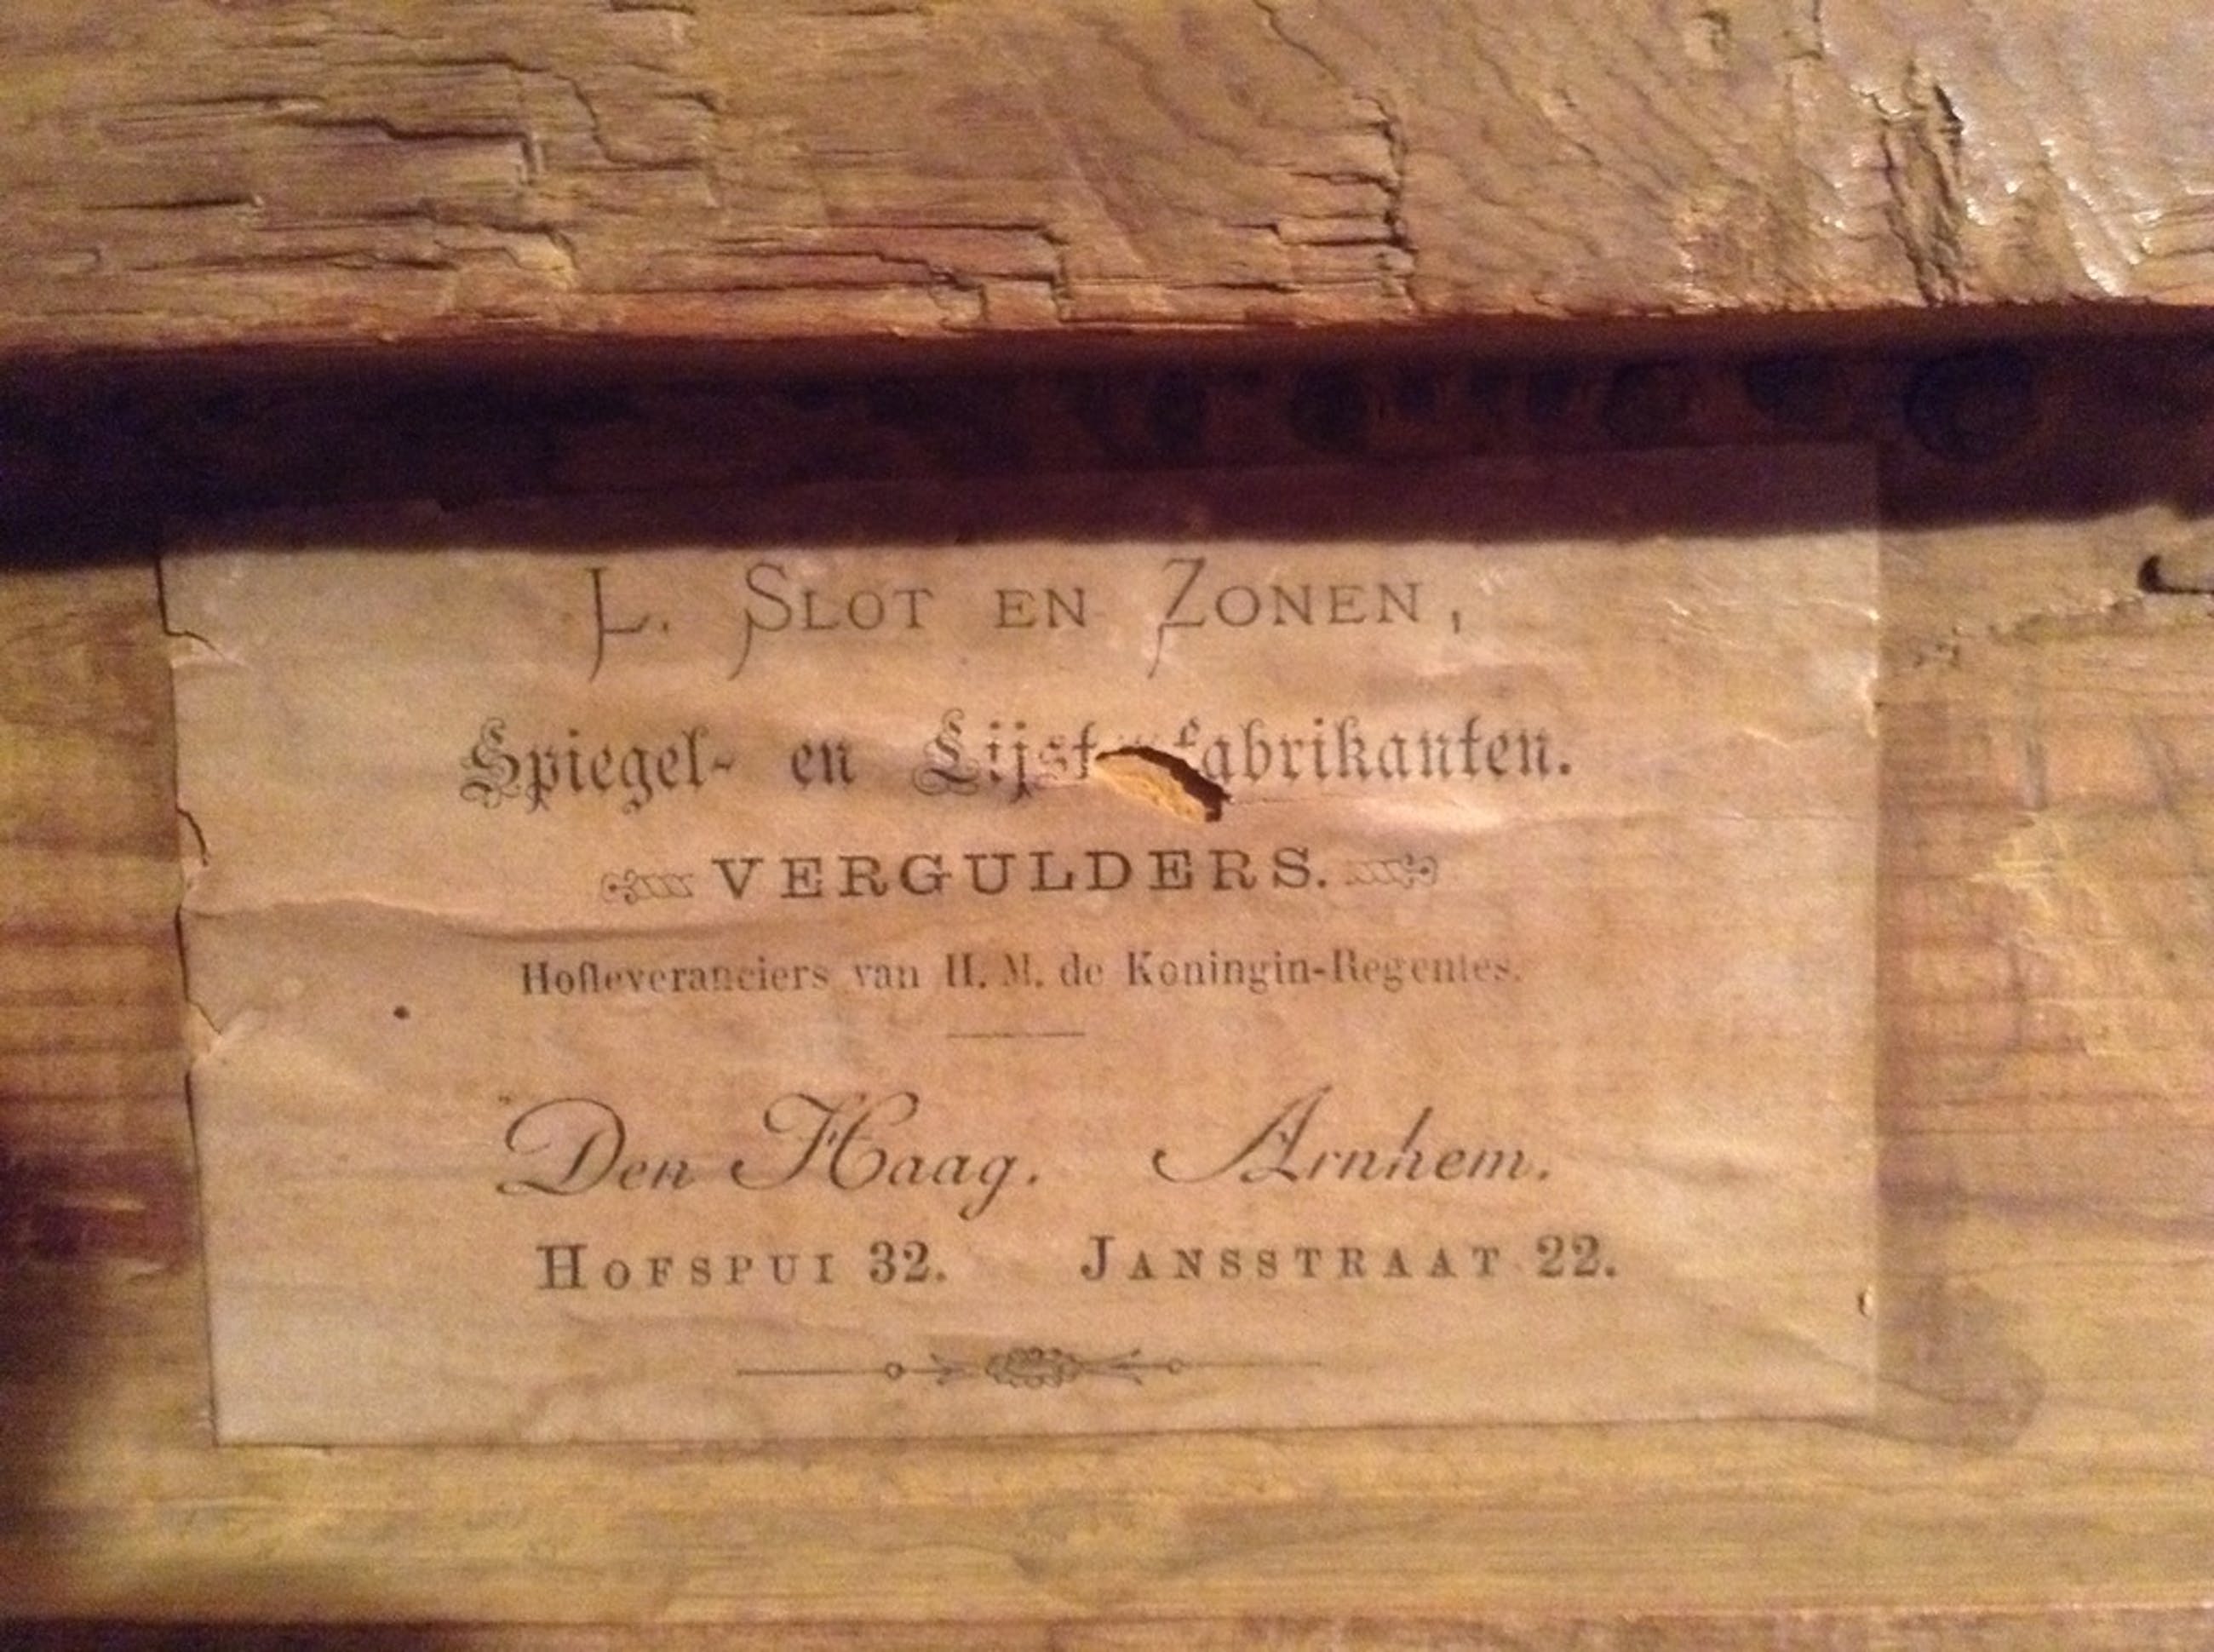 L. SLOT EN ZONEN,
Spiegel- en Lijstenfabrikanten.
VERGULDERS.
Hofleveranciers van H. M. de Koningin-Regentes.
Den Haag. Arnhem.
HOFSPUI 32. JANSSTRAAT 22.